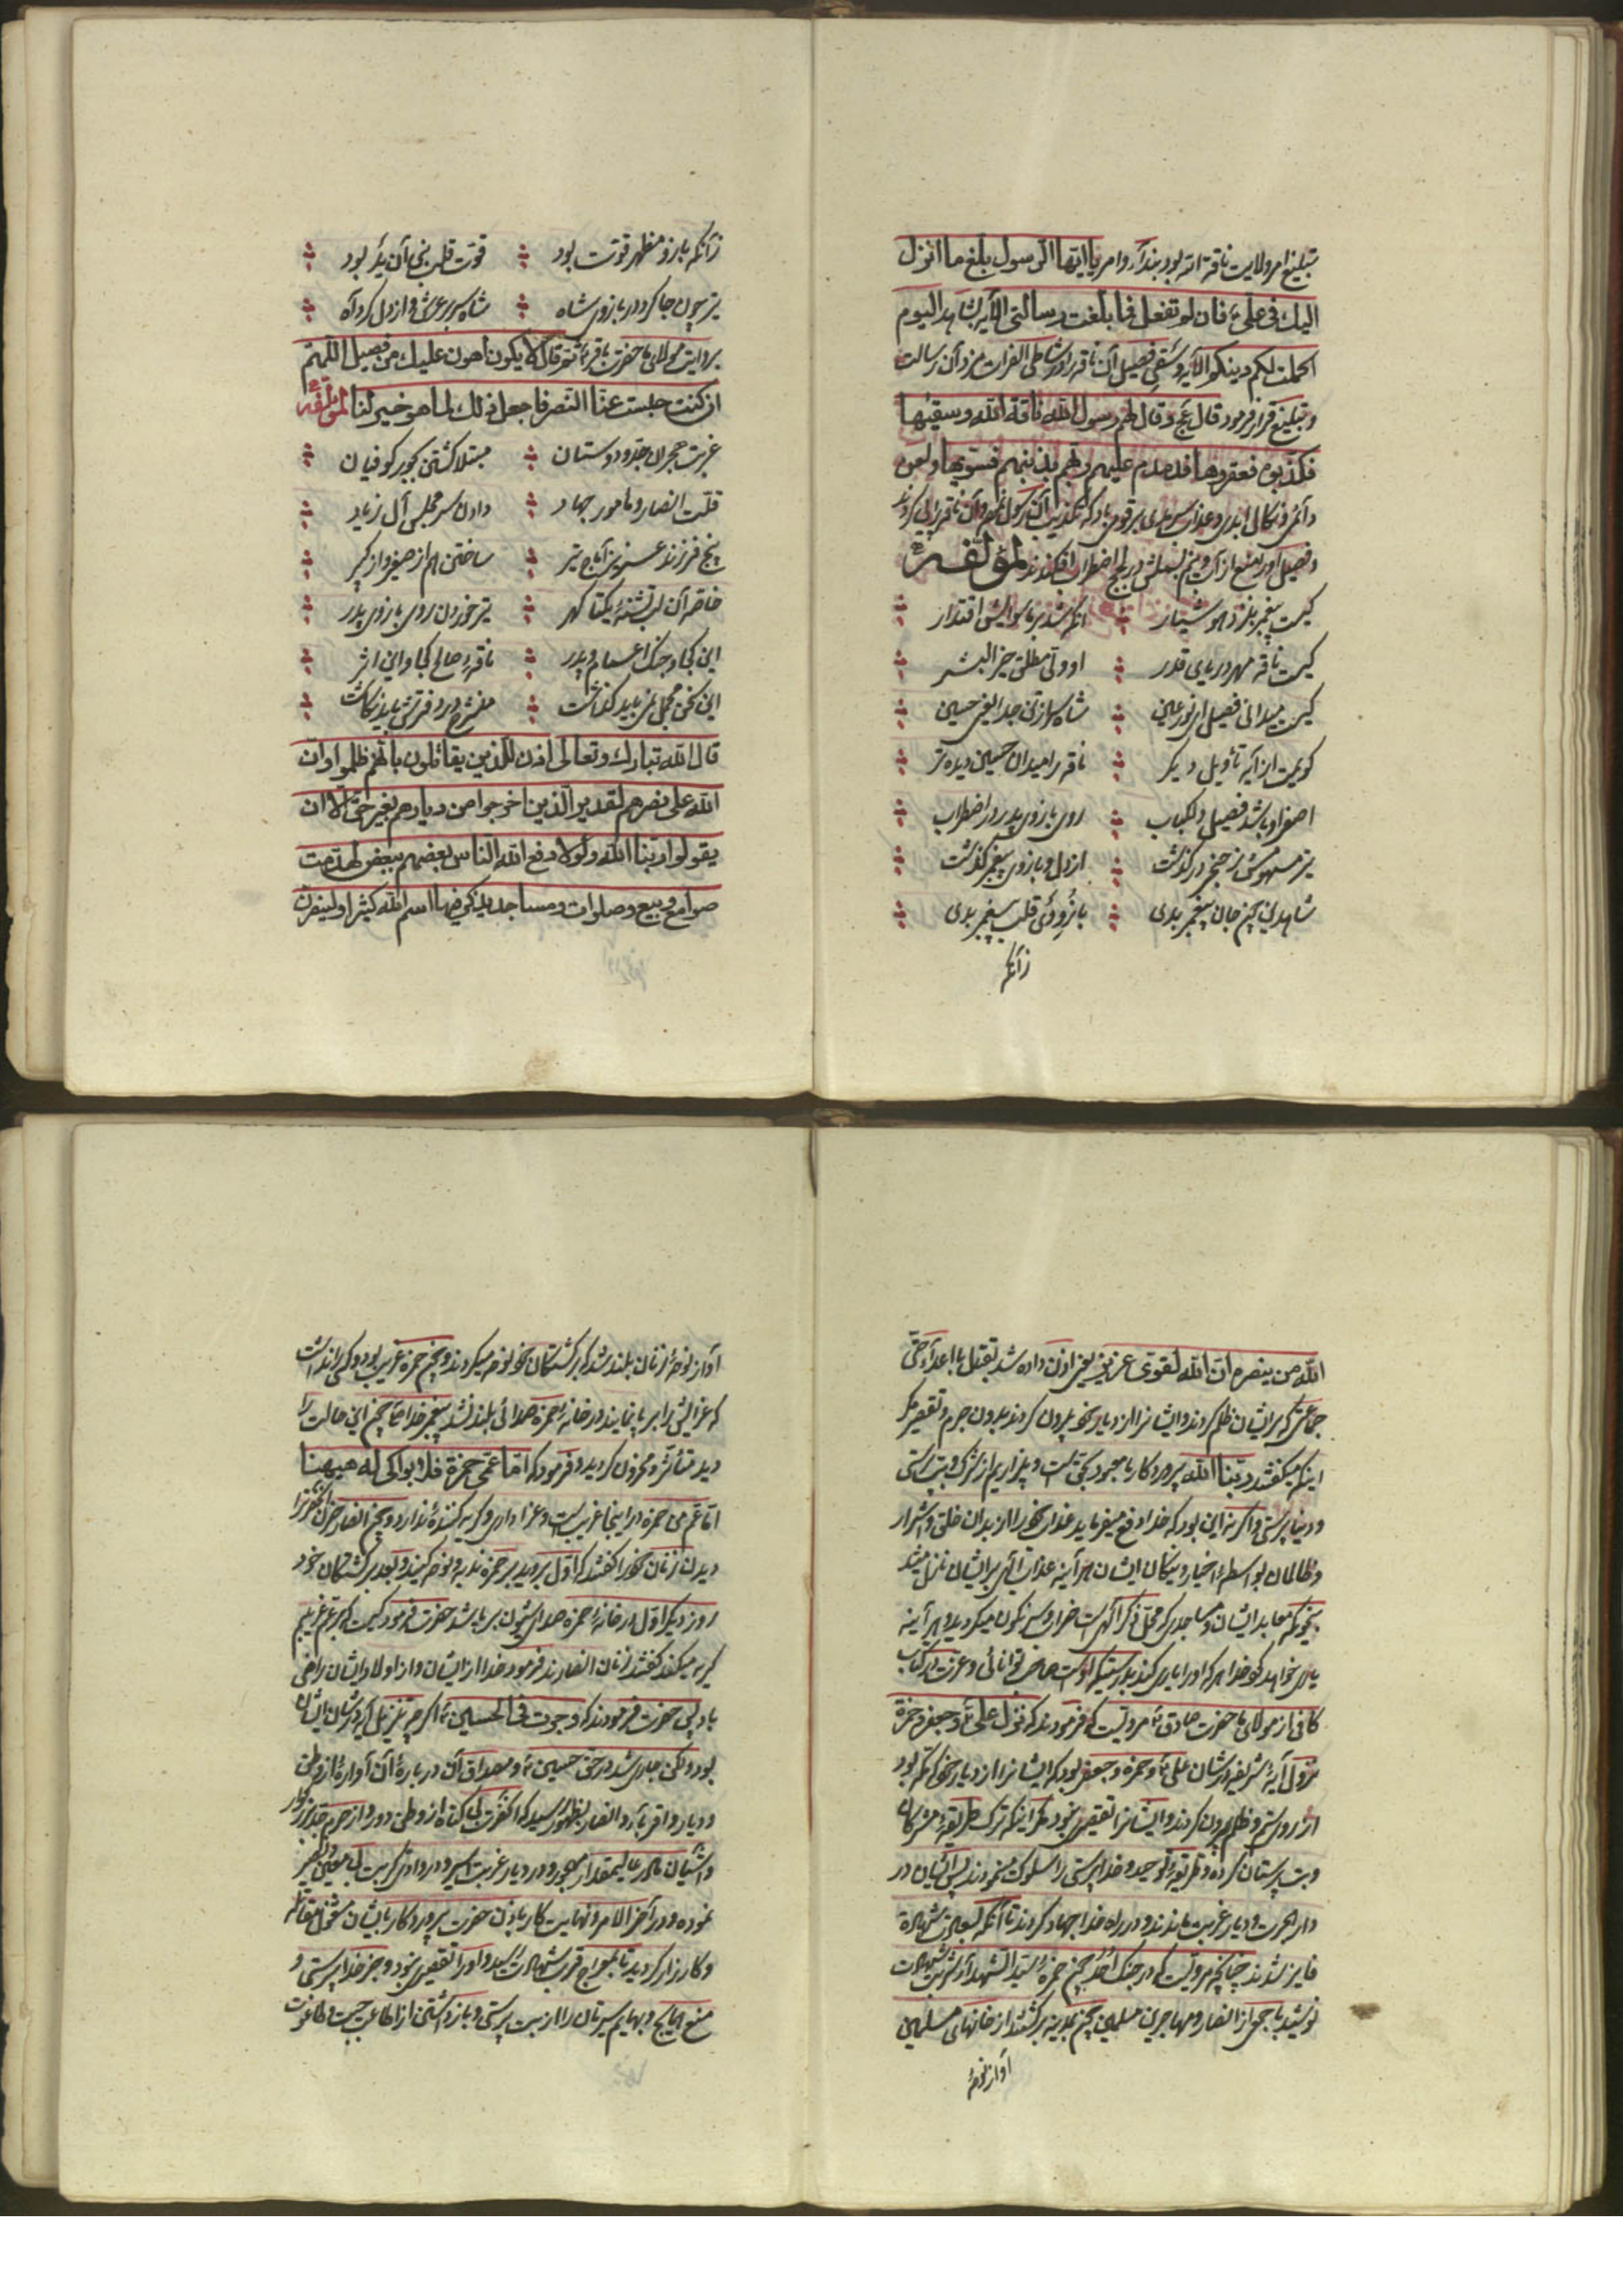 تبلیغ امر ولایت ناقة الله بود بندآء وامر یا ایها الرسول بلغ ما انزل
الیك فی علیّ فان لم تفعل فما بلغت رسالتی الآیه بشاهد الیوم
اکملت لکم دینکم الآیه وسقی فصیل آن ناقه را در شاطی الفرات مزد آن رسالت
و تبلیغ قرار فرمود قال عج وقال لهم رسول الله ناقة الله وسقیها
فکذبوه فعقروها فدمدم علیهم ربهم بذنبهم فسویها ولعن
دائمی ونکال ابدی وعذاب سرمدی بر قومی باد که تکذیب آن رسول نموده وآن ناقه را پی کردند
وفصیل اورا منع از آب و بتیر بسملش در لجه اضطراب افکندند لمؤلفه
کیست پیغمبر بنزد هوشیار ؞ آنکه شد بر ماسوایش اقتدار ؞
کیست ناقه مهر دریای قدر ؞ او ولی مطلق خیر البشر ؞
کیست میدانی فصیل ای نور عین ؞ شاه سرازتن جدا یعنی حسین ؞
گویمت این آیه تأویل دیگر ؞ ناقه را میدان حسین دیده تر ؞
اصغر او باشد فصیل دلکباب ؞ روی بازوی پدر در اضطراب ؞
تیر مسمومش ز حنجر درگذشت ؞ از دل و بازوی پیغمبر گذشت ؞
شاهدین چون جان پیغمبر بدی ؞ بازوی قلب پیغمبر بدی ؞
زآنکه
زآنکه بازو مظهر قوت بود ؞ قوت قلب نبی آن ید بود ؞
تیر چون جا کرد در بازوی شاه ؞ شاه سریر عرش از دل کرد آه ؞
بروایت مولای ما حضرت باقر ثم قال لا یکون اهون علیك من فصیل اللهم
ان کنت حبست عنا النصر فاجعل ذلك لما هو خیر لنا لمؤلفه
غربت هجران جد و دوستان ؞ مبتلا گشتن بجور کوفیان ؞
قلت انصار و مامور جهاد ؞ دادن سر مجلس آل زیاد ؞
پنج فرزند عزیز آماج تیر ؞ ساختن هم از صغیر و از کبیر ؞
خاصه آن لب تشنه یکتا گهر ؞ تیر خوردن روی بازوی پدر ؞
این کجا و جنک اعمام و پدر ؞ ناقه صالح کجا و این اثر ؞
این سخن مجمل نباید گذاشت ؞ منشرح در دفترش باید نگاشت ؞
قال الله تبارك وتعالی اذن للذین یقاتلون بانهم ظلموا وان
الله علی نصرهم لقدیر الذین اخرجوا من دیارهم بغیر حق الا ان
یقولوا ربنا الله ولولا دفع الله الناس بعضهم ببعض لهدمت
صوامع وبیع وصلوات ومساجد یذکر فیها اسم الله کثیرا ولینصرن
الله من ینصره ان الله لقوی عزیز یعنی اذن داده شد بقتل با اعدآء حتی
جماعتی که برایشان ظلم کردند وایشانرا از دیار خود بیرون کردند بدون جرم و تقصیر مگر
اینکه میگفتند ربنا الله پروردکار ما معبود بحق است و بیزاریم از شرک و بت پرستی
و دنیا پرستی واگر نه این بود که خدا دفع میفرماید عذاب خود را از بدان خلق واشرار
وظالمان بواسطه اخیار و نیکان ایشان هر آینه عذاب الهی برایشان نازل میشد
بنحویکه معابد ایشان ومساجدی که محل ذکر الهی است خراب وسرنگون میگردید و هر آینه
یاری خواهد کرد خدا هر که اورا یاری کند بدرستیکه اوست صاحب توانائی وعزت در کتاب
کافی از مولای ما حضرت صادق مرویست که فرمودند که نزل علی وجعفر وحمزة
نزول آیه شریفه در شان علی وحمزه وجعفر بود که ایشانرا از دیار خود که مکه بود
از روی ستم وظلم بیرون کردند وایشانرا تقصیری نبود مگر اینکه ترک طریقه مشرکان
وبت پرستان کرده وطریقه توحید وخدا پرستی را سلوک مینمودند پس ایشان در
دار هجرت ودیار غربت ماندند ودر راه خدا جهاد کردند تا آنکه بسعادت شهادة
فایز شدند چنانچه مرویست که در جنک احد چون حمزه سید الشهدآء شربت شهادت
نوشید با جمعی از انصار ومهاجرین مسلمین چون بمدینه برگشتند از خانهای مسلمین
آواز نوحه
آواز نوحه زنان بلند شد که بر کشتگان خود نوحه میکردند وچون حمزه غریب بود وکسی را نداشت
که عزائیش برا بر پا نمایند در خانه حمزه صدائی بلند نشد پیغمبر خدا چون این حالت را
دید متأثر ومحزون گردید وفرمود که اما عمی حمزة فلا بواکی له هیهنا
اما عم من حمزه در اینجا غریب است وعزاداری وگریه کننده ندارد وچون انصار حزن آنحضرترا
دیدند زنان خود را گفتند که اول بروید بر حمزه ندبه ونوحه کنید وبعد بر کشتگان خود
روز دیگر اول در خانه حمزه صدای شیون بر پا شد حضرت فرمود کیست که بر عم غریبم
گریه میکند گفتند زنان انصارند فرمود خدا از ایشان واز اولاد ایشان راضی
باد پس حضرت فرمودند که وجرت فی الحسین اگر چه تنزیل آیه در شان ایشان
بود ولکن جاری شد در حق حسین ومصداق آن درباره آن آواره از وطن
ودیار واقربآء وانصار بظهور رسید که آنحضرت بی گناه از وطن دور واز حرم جد بزرگوار
وآشیان مادر عالیمقدار مهجور ودر دیار غربت اسیر ودر وادی کربت بی معین
نموده ودر آخر الامر ونهایت کار باذن حضرت پروردکار با ایشان مشغول مقاتله
وکارزار گردید تا بمعراج قرب شهادت رسید واورا تقصیری نبود وجز خدا پرستی و
منع وبهایم سیرتان را از بت پرستی وباز داشتن از اطاعت جبت وطاغوت